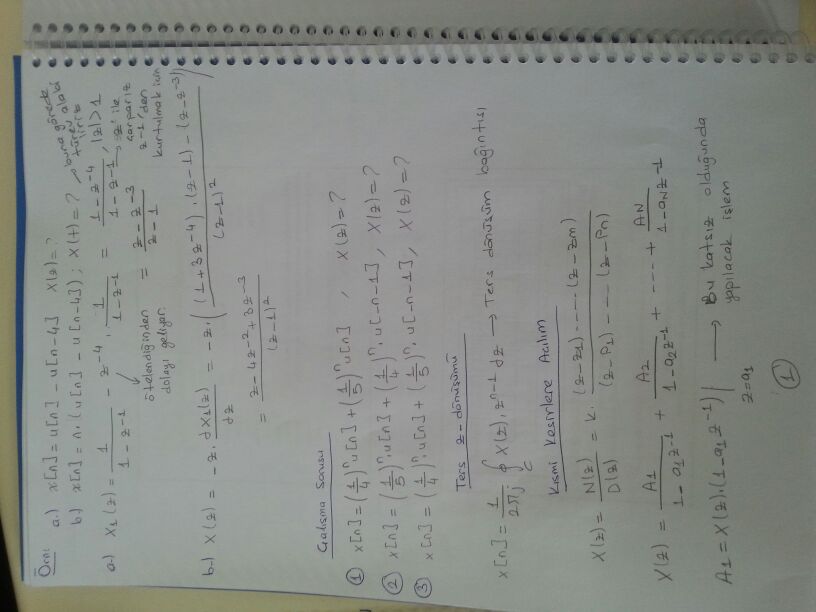 Örn: a.) x[n] = u[n] - u[n-4] X(z) = ?
b.) x[n] = n.(u[n] - u[n-4]) ; X(z) = ? → buna görede türev alabiliriz
a-) X1(z) = 1/(1-z^-1) - z^-4 . 1/(1-z^-1) = (1-z^-4)/(1-z^-1) , |z|>1
ötelendiğinden dolayı geliyor.
= (z-z^-3)/(z-1) → 'z' ile çarparız z^-1 'den kurtulmak için
b-) X(z) = -z. dX1(z)/dz = -z. ((1+3z^-4).(z-1) - (z-z^-3))/(z-1)^2
= (z-4z^-2+3z^-3)/(z-1)^2
Çalışma Sorusu
① x[n] = (1/4)^n u[n] + (1/5)^n u[n] , X(z) = ?
② x[n] = (1/5)^n . u[n] + (1/4)^n . u[-n-1] , X(z) = ?
③ x[n] = (1/4)^n . u[n] + (1/5)^n . u[-n-1] , X(z) = ?
Ters z-dönüşümü
x[n] = 1/2πj ∮c X(z). z^n-1 dz → Ters dönüşüm bağıntısı
Kısmi Kesirlere Açılım
X(z) = N(z)/D(z) = k. (z-z1) ---- (z-zm)/(z-p1) ---- (z-pn)
X(z) = A1/(1-a1z^-1) + A2/(1-a2z^-1) + ---- + AN/(1-aNz^-1)
A1 = X(z).(1-a1z^-1) | z=a1 → Bu katsız olduğunda yapılacak işlem
①